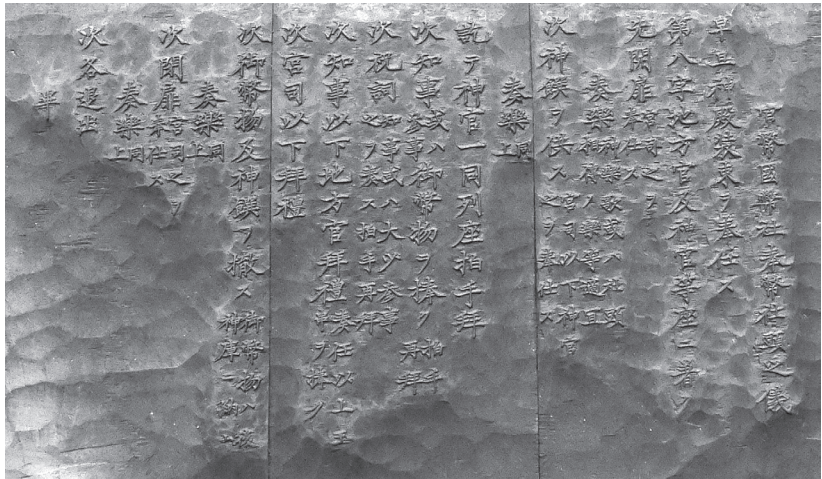 官幣國幣社奉幣社頭之儀
早旦神殿裝束ヲ奉仕ス
第八字地方官及神官等座ニ著ク
先開扉宮司之ヲ奉仕ス
奏樂神樂歌或ハ社頭相傳ノ樂等適宜
次神饌ヲ供ス宮司以下神官之ヲ奉仕ス
奏樂同上
訖テ神官一同列座拍手拜
次知事或ハ參事御幣物ヲ捧ク拍手再拜
次祝詞知事或ハ大少參事之ヲ奏ス拍手再拜
次知事以下地方官拜禮奏任以上玉串ヲ捧ク
次宮司以下拜禮
次御幣物及神饌ヲ撤ス御幣物ハ神庫ニ納ム
奏樂同上
次閉扉宮司之ヲ奉仕ス
奏樂同上
次各退出
畢